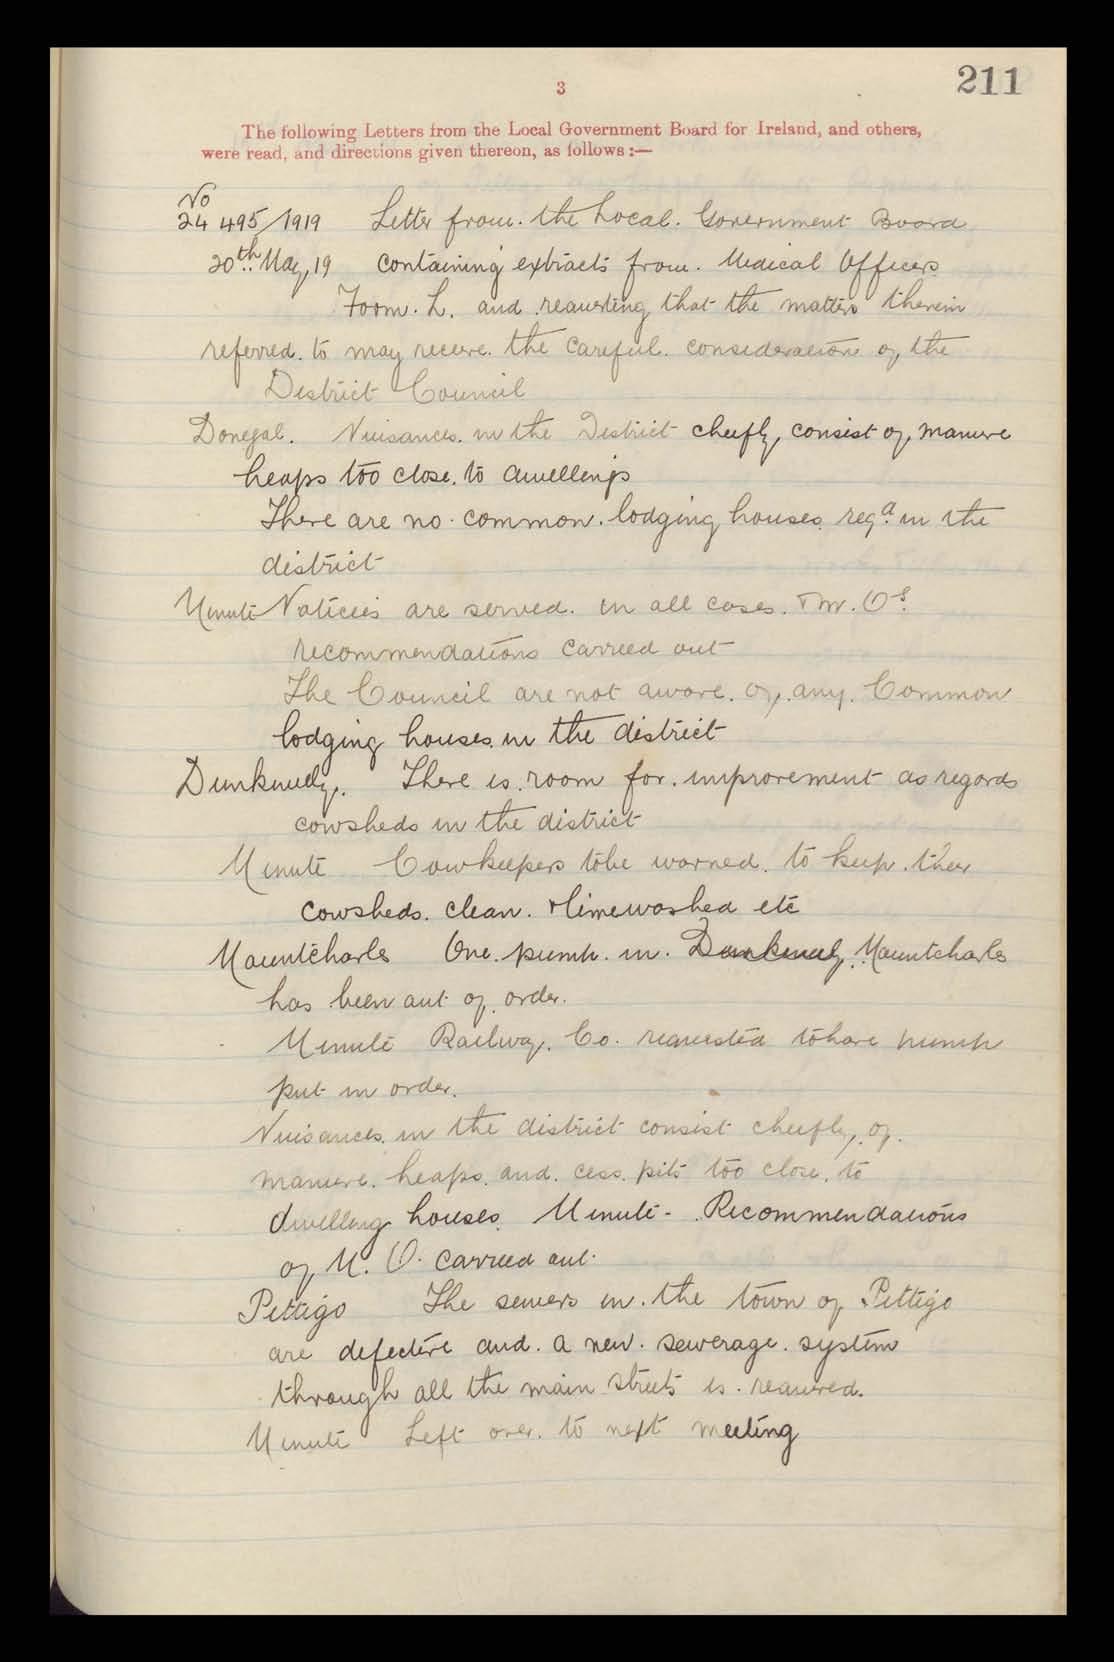 211
3
The following Letters from the Local Government Board for Ireland, and others,
were read, and directions given thereon, as follows :—
No
24 495/1919 Letter from the Local Government Board
20th May, 19 containing extracts from Medical Officers
Form L. and requesting that the matters therein
referred to may receive the careful consideration of the
District Council
Donegal. Nuisances in the District cheefly consist of manure
heaps too close to dwellings
There are no common lodging houses regd in the
district
Minute Notices are served in all cases & M. Os
recommendations carried out
The Council are not aware of any Common
lodging houses in the district
Dunkneely. There is room for improvement as regards
cowsheds in the district
Minute Cowkeepers to be warned to keep their
cowsheds clean & limewashed etc
Mountcharles One pump in Dunkneely Mountcharles
has been out of order.
Minute Railway Co. requested to have pump
put in order.
Nuisances in the district consist cheefly of
manure heaps and cess pits too close to
dwelling houses Minute - Recommendations
of M. O. carried out.
Pettigo The sewers in the town of Pettigo
are defective and a new sewerage system
through all the main streets is required.
Minute Left over to next meeting